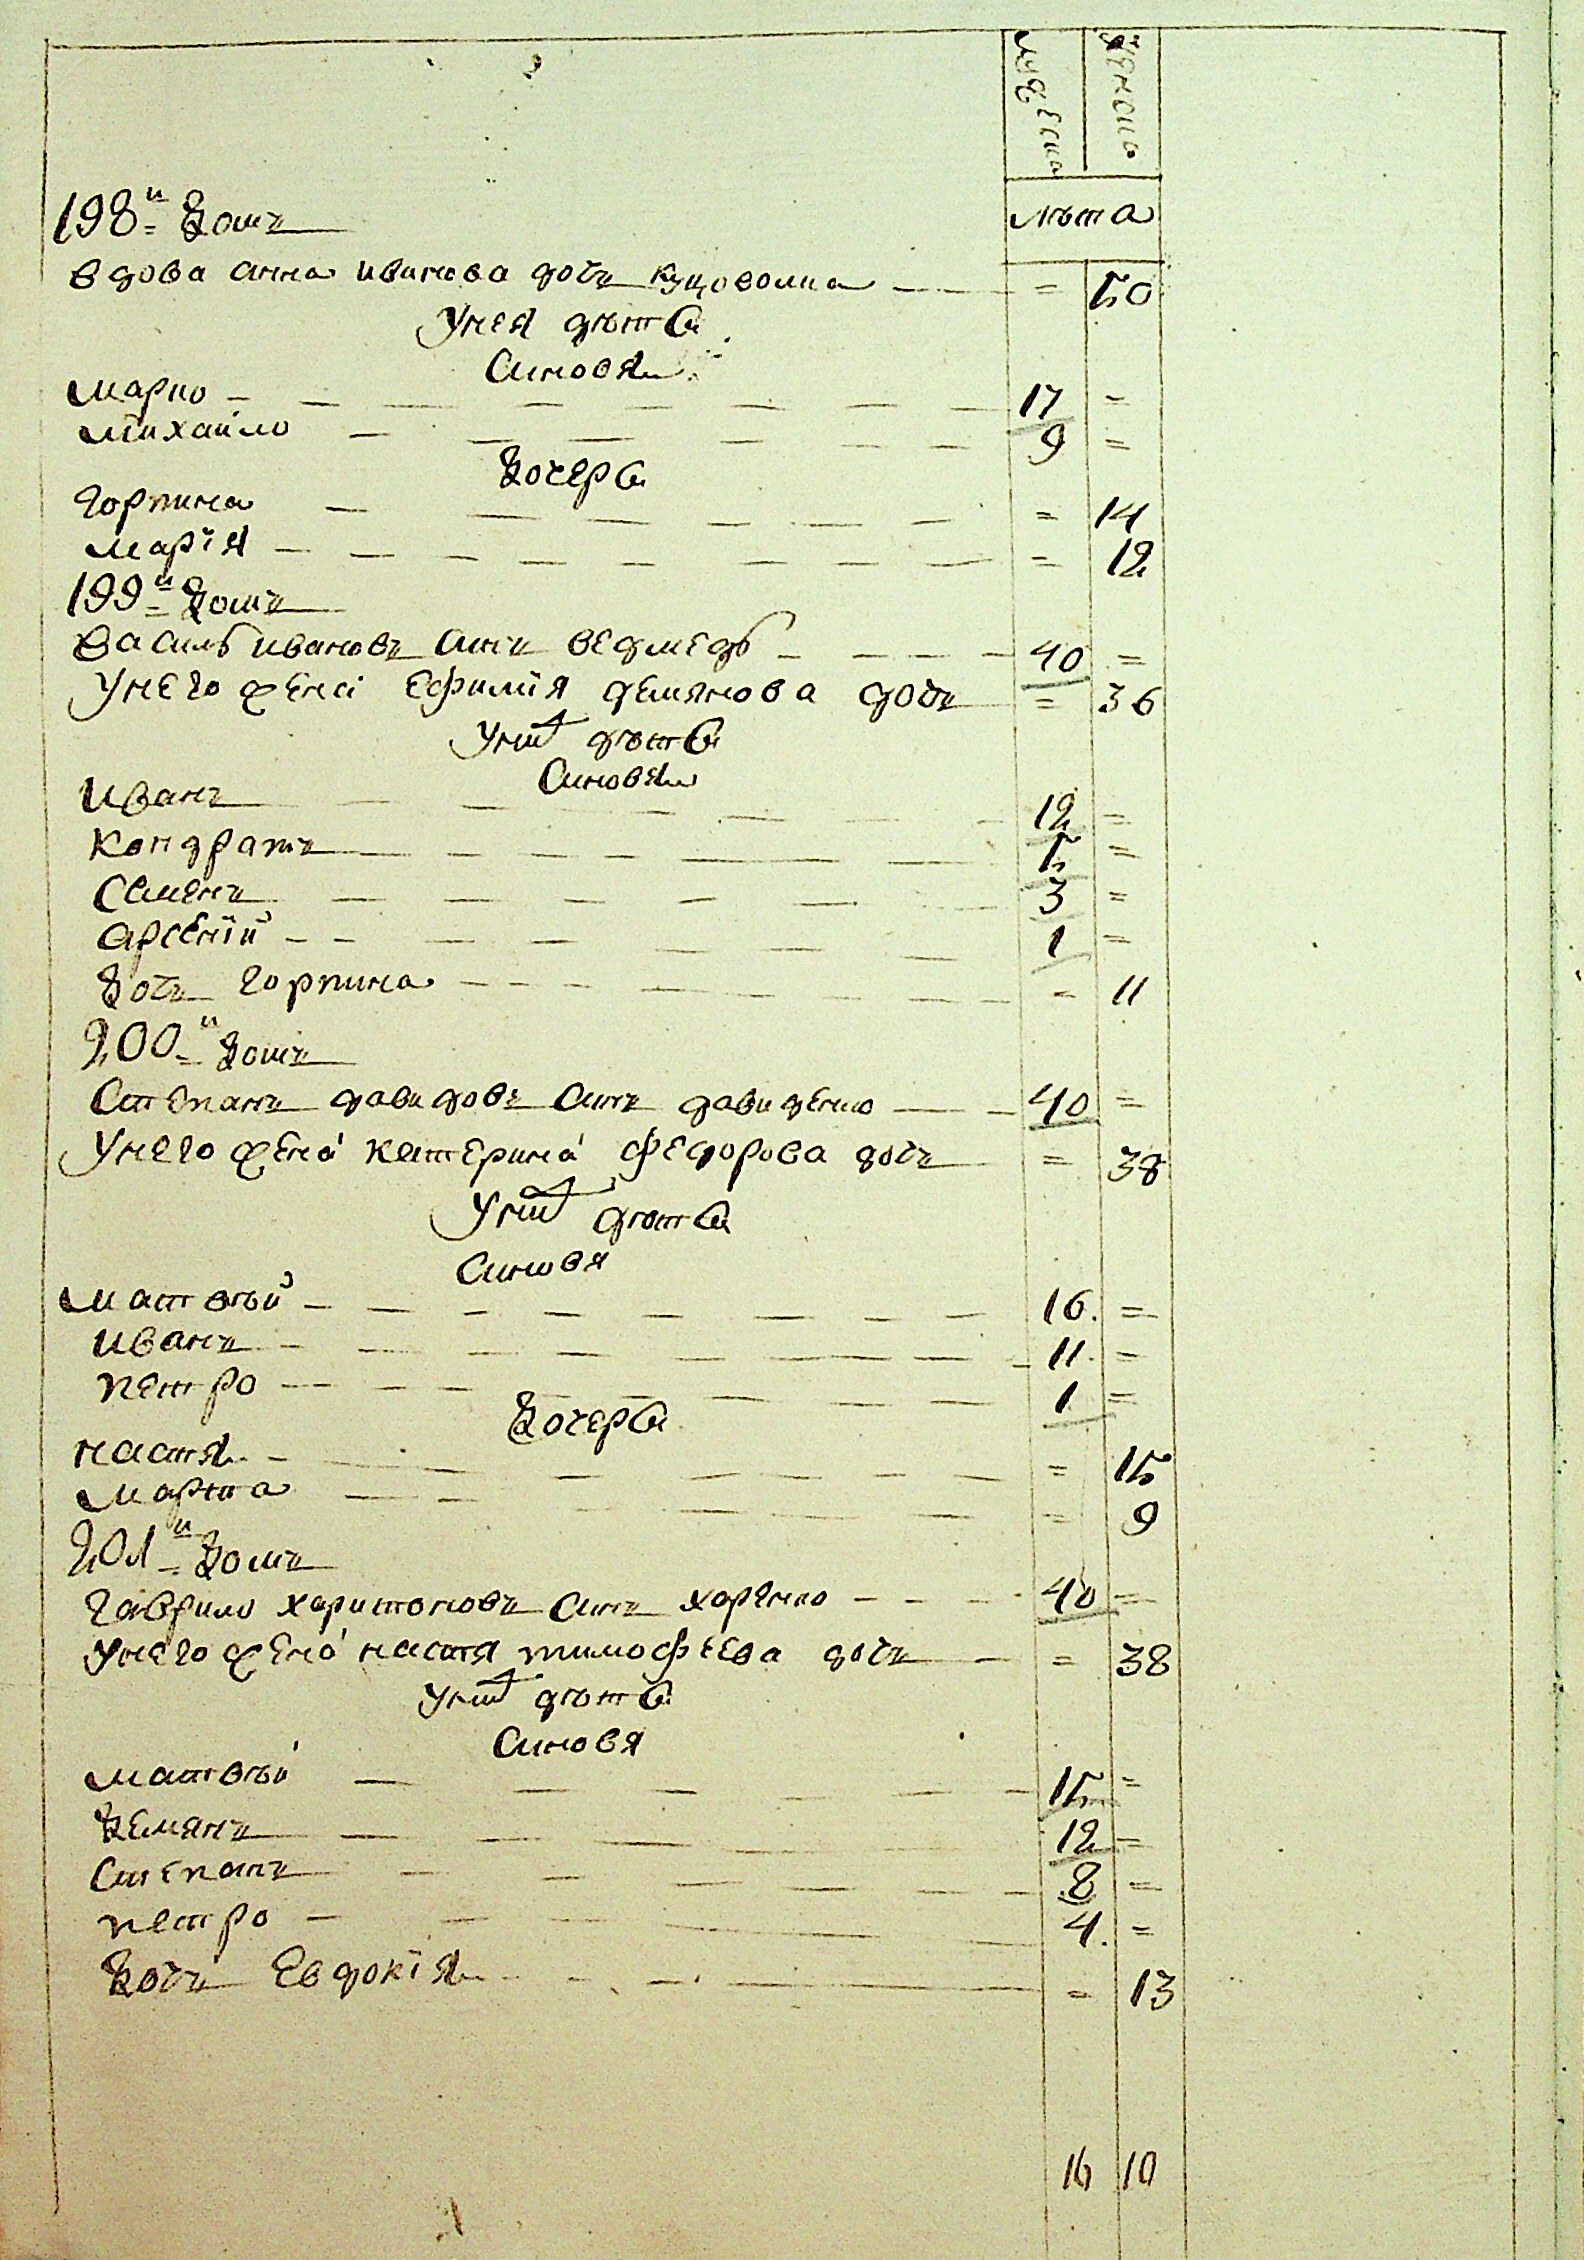 мужеска женска
лѣта
198й домъ
вдова анна иванова дочъ куцоволка = 50
У нея дѣти
Синовя
марко 17 =
михайло 9 =
Дочери
горпина = 14
марїя = 12
199й домъ
василь ивановъ синъ ведмедь 40 =
У него жена ефимїя демянова дочъ = 36
У них дѣти
Синовя
иванъ 12 =
кондратъ 5 =
Семенъ 3 =
арсенїй 1 =
Дочъ горпина = 11
200й домъ
Степанъ давидовъ синъ давиденко 40 =
У него жена катерина федорова дочъ = 38
У них дѣти
Синовя
матвѣй 16 =
иванъ 11 =
петро 1 =
Дочери
настя = 15
марта = 9
201й домъ
гаврило харитоновъ синъ харенко 40 =
У него жена настя тимофѣева дочъ = 38
У них дѣти
Синовя
матвѣй 15 =
Демянъ 12 =
Степанъ 8 =
петро 4 =
Дочъ Евдокїя = 13
16 10